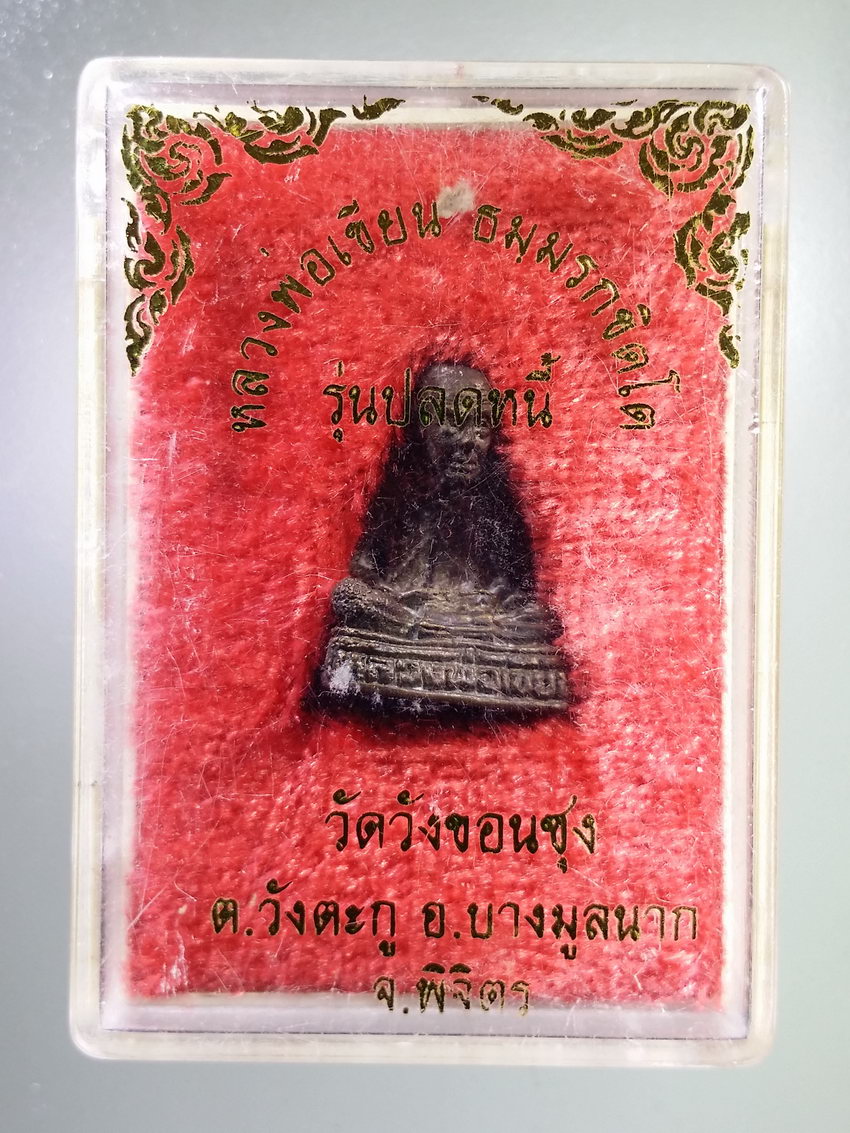 หลวงพ่อเขียน ธมฺมรกฺขิตโต
รุ่นปลดหนี้
หลวงพ่อเขียน
วัดวังขอนซุง
ต.วังตะกู อ.บางมูลนาก
จ.พิจิตร